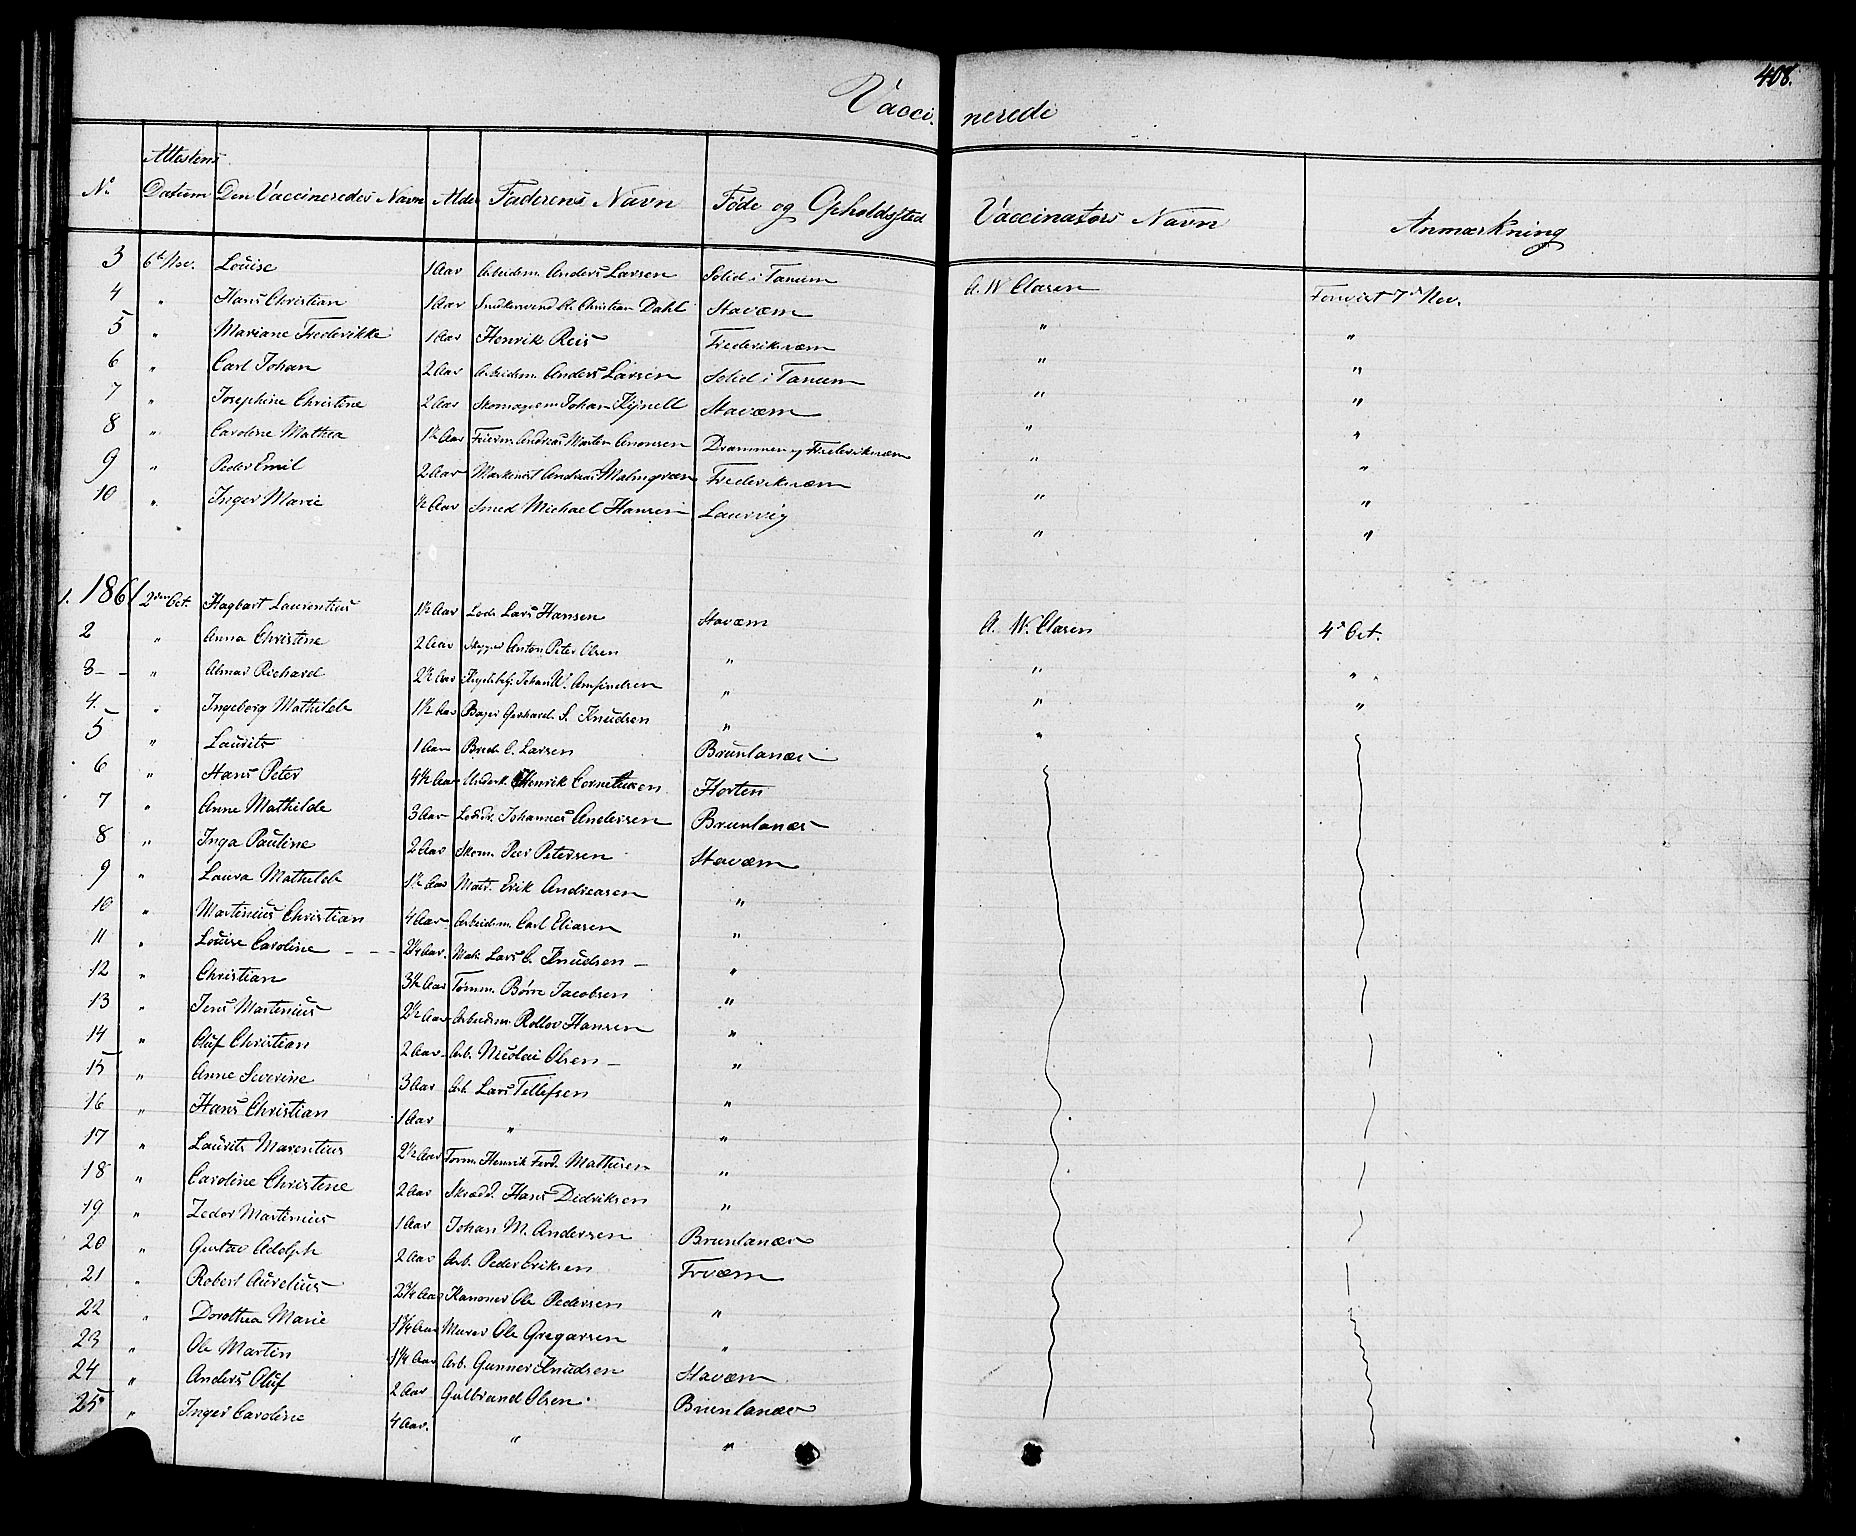 408.
Vacci- nerede
No Attestens Datum Den Vaccineredes Navn Alder Faderens Navn Føde og Opholdssted Vaccinators Navn Anmærkning
3 6te Nov. Louise 1 Aar Arbeidsm. Anders Larsen Solid i Tanum A. W Clasen Fremvist 7de Nov.
4 " Hans Christian 1 Aar Snedkersvend Christian Dahl Staværn " "
5 " Mariane Frederikke 1 Aar Henrik Reis Frederiksværn " "
6 " Carl Johan 2 Aar Arbeidsm. Anders Larsen Solid i Tanum " "
7 " Josephine Christine 2 Aar Skomagerm Johan Kynell Staværn " "
8 " Caroline Mathea 1½ Aar Andreas Morten Amonsen Drammen og Frederiksværn " "
9 " Peder Emil 2 Aar Maskinist Andreas Malmgreen Frederiksværn " "
10 " Inger Marie ½ Aar Smed Michael Hansen Laurvig " "
1861
1. 2den Oct. Hagbart Laurentius 1½ Aar Lods Lars Hansen Staværn A. W. Clasen 4de Oct.
2 " Anna Christine 2 Aar Skipper Anton Peter Olsen " " " "
3 - - " Almar Richard 2½ Aar Johan Amfindsen " " "
4. - " Ingeborg Mathilde 1½ Aar Bager Gerhard S. Knudsen " "
5 " Laurits 1 Aar C. Larsen Brunlanæs
6 " Hans Peter 4½ Aar Underk. Henrik Corneliusen Horten
7 " Anne Mathilde 3 Aar Johannes Andersen Brunlanæs
8 " Inga Pauline 2 Aar Skom. Peer Petersen Staværn
9 " Laura Mathilde 1½ Aar Matr. Erik Andreasen "
10 " Martinius Christian 4 Aar Arbeidsm. Carl Eliasen "
11 " Louise Caroline - - - 2¼ Aar. Lars C. Knudsen - "
12 " Christian 3½ Aar Tømm. Børre Jacobsen "
13 " Jens Martinius 2½ Aar Arbeidsm. Rollov Hansen "
14 " Oluf Christian 2 Aar Arb. Nicolai Olsen - "
15 " Anne Severine 3 Aar Arb. Lars Tellefsen "
16 " Hans Christian 1 Aar " "
17 " Laurits Marentius 2½ Aar Tømm. Henrik Ferd. Mathisen "
18 " Caroline Christine 2 Aar Skrædd. Hans Didriksen "
19 " Zedor Martinius 1 Aar Johan M. Andersen Brunlanæs
20 " Gustav Adolph 2 Aar Arb. Peder Eriksen Frværn
21 " Robert Aurelius 2¾ Aar Kanoner Ole Pedersen "
22 " Dorothea Marie 1¾ Aar Murer Ole Gregersen "
23 " Ole Martin 1¼ Aar Arb. Gunner Knudsen Staværn
24 " Anders Oluf 2 Aar Gulbrand Olsen Brunlanæs
25 " Inger Caroline 4 Aar. " "